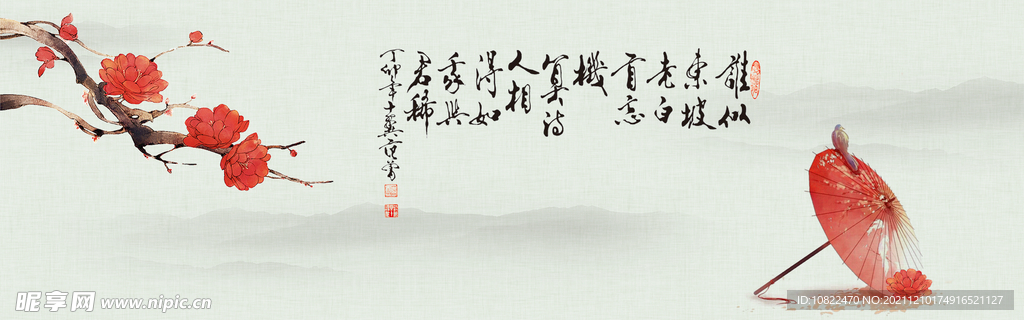 誰似
東坡
老白
首忘
機
算詩
人相
得如
我與
君稀
丁卯年十翼范曾
昵享网 www.nipic.cn
ID:10822470 NO:20211210174916521127